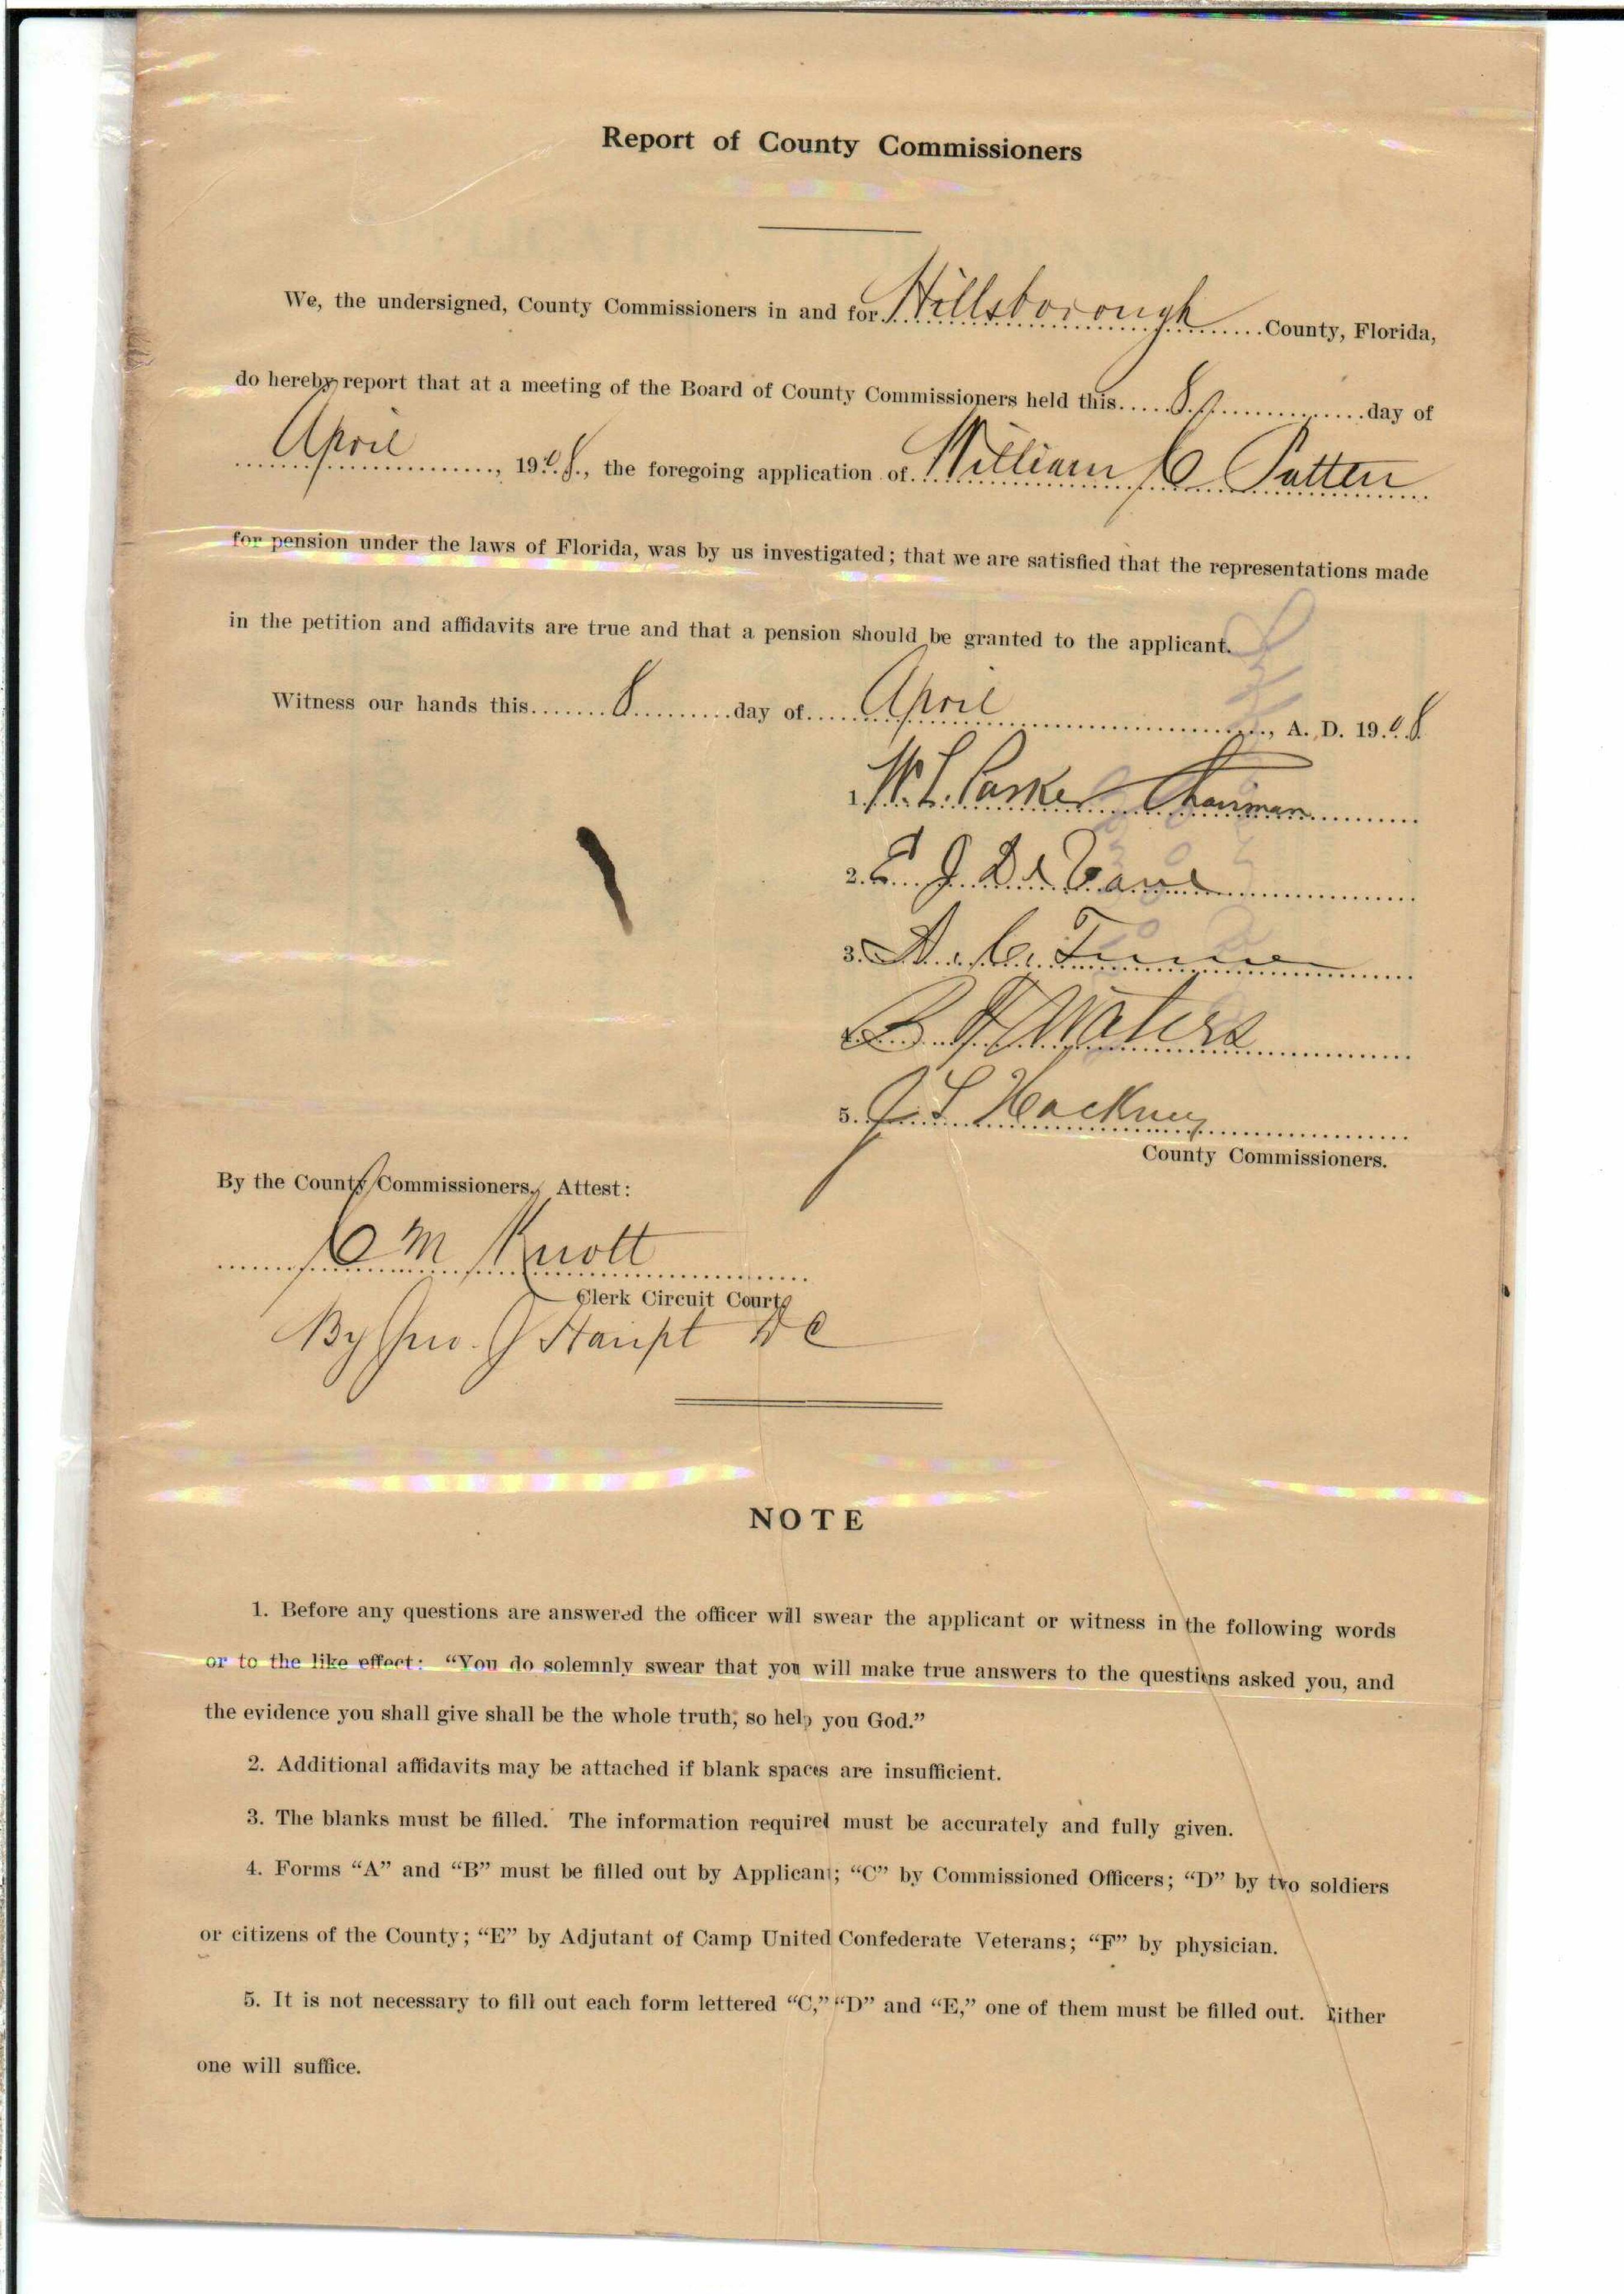 Report of County Commissioners
We, the undersigned, County Commissioners in and for Hillsborough County, Florida,
do hereby report that at a meeting of the Board of County Commissioners held this 8 day of
April, 1908, the foregoing application of William C Patten
for pension under the laws of Florida, was by us investigated; that we are satisfied that the representations made
in the petition and affidavits are true and that a pension should be granted to the applicant.
Witness our hands this 8 day of April, A. D. 1908
1. W. L. Parker Chairman
2. E J De Vane
3. A. C.
B H Waters
5. J L Hackney
County Commissioners.
By the County Commissioners, Attest:
C M Knott
Clerk Circuit Court
By Jno. J Haupt D C
NOTE
1. Before any questions are answered the officer will swear the applicant or witness in the following words
or to the like effect: “You do solemnly swear that you will make true answers to the questions asked you, and
the evidence you shall give shall be the whole truth, so help you God.”
2. Additional affidavits may be attached if blank spaces are insufficient.
3. The blanks must be filled. The information required must be accurately and fully given.
4. Forms “A” and “B” must be filled out by Applicant; “C” by Commissioned Officers; “D” by two soldiers
or citizens of the County; “E” by Adjutant of Camp United Confederate Veterans; “F” by physician.
5. It is not necessary to fill out each form lettered “C,” “D” and “E,” one of them must be filled out. Either
one will suffice.